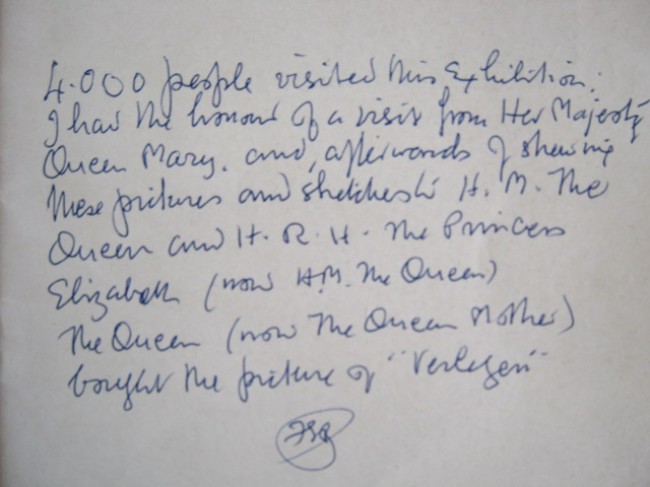 4.000 people visited this Exhibition.
I had the honour of a visit from Her Majesty
Queen Mary. and, afterwards of shewing
these pictures and sketches to H. M. The
Queen and H. R. H. The Princess
Elizabeth (now H.M. The Queen)
The Queen (now The Queen Mother)
bought the picture of "